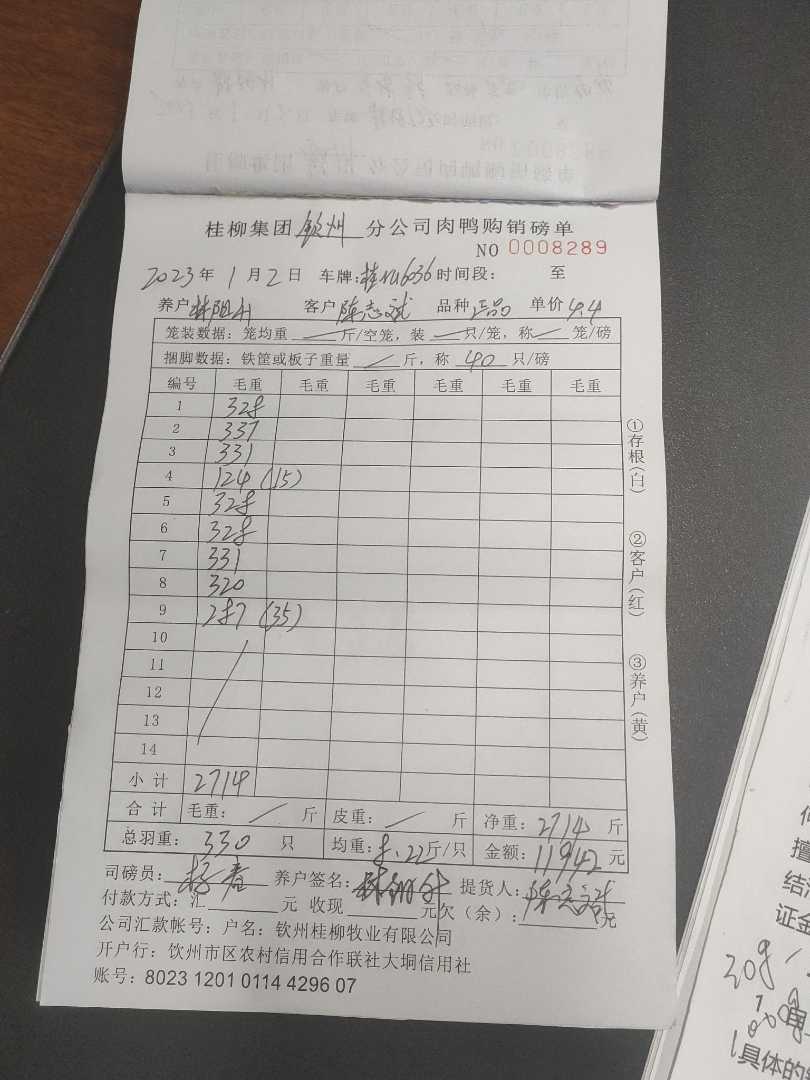 桂柳集团 钦州 分公司肉鸭购销磅单
NO 0008289
2023年 1月 2日 车牌: 时间段: 至
养户 客户 陈志斌 品种 正品 单价 4.4
笼装数据: 笼均重 / 斤/空笼, 装 / 只/笼, 称 / 笼/磅
捆脚数据: 铁筐或板子重量 / 斤, 称 40 只/磅
编号 毛重 毛重 毛重 毛重 毛重 毛重
1 328
2 337
3 331
4 124 (15)
5 328
6 328
7 331
8 320
9 287 (35)
10
11
12
13
14
小计 2714
合计 毛重: / 斤 皮重: / 斤 净重: 2714 斤
总羽重: 330 只 均重: 8.22斤/只 金额: 11942元
司磅员: 养户签名: 提货人: 陈志斌
付款方式: 汇 元 收现 元欠(余): 元
公司汇款帐号: 户名: 钦州桂柳牧业有限公司
开户行: 钦州市区农村信用合作联社大垌信用社
账号: 8023 1201 0114 4296 07
①存根(白)
②客户(红)
③养户(黄)
结
证金
具体的